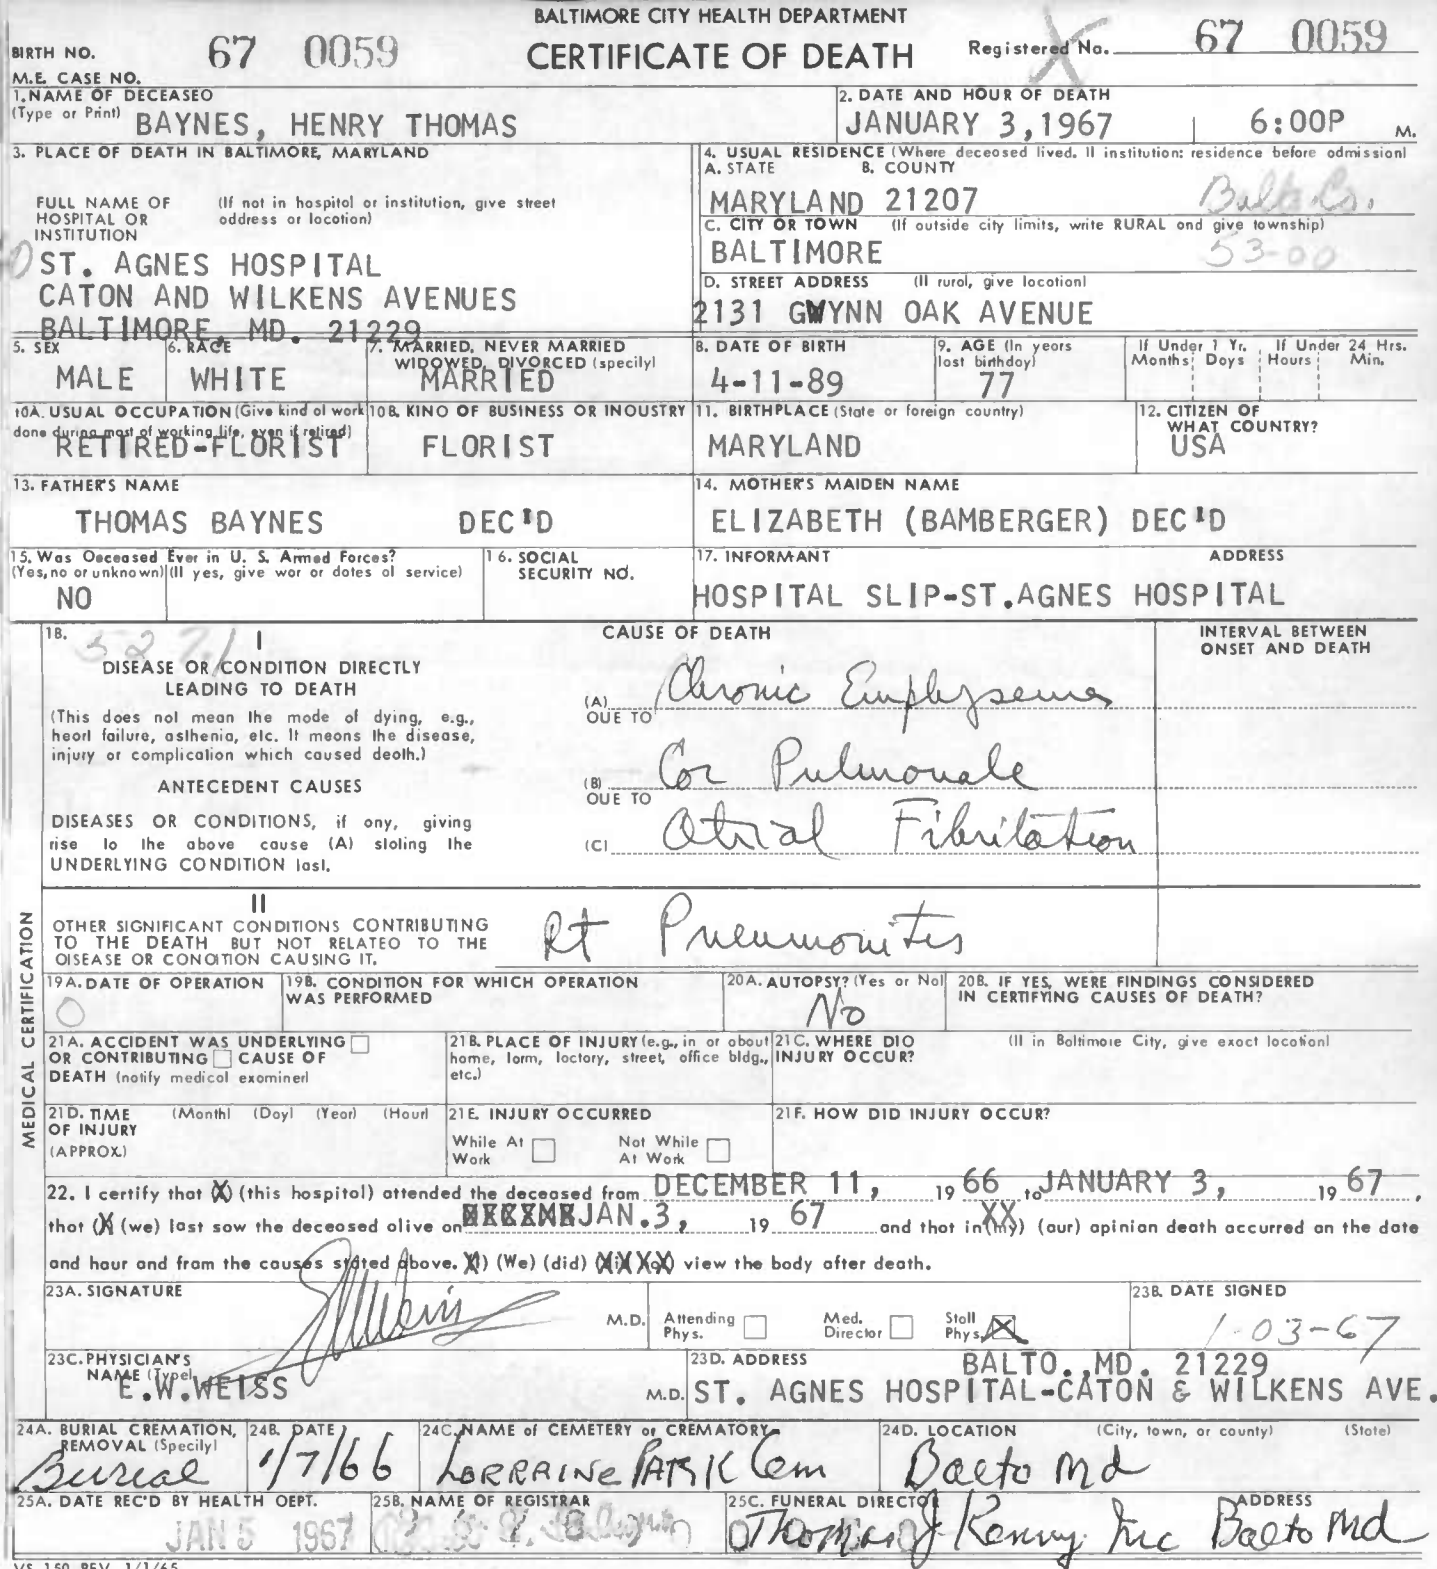 BALTIMORE CITY HEALTH DEPARTMENT
CERTIFICATE OF DEATH
BIRTH NO. 67 0059
Registered No. 67 0059
M.E. CASE NO.
1. NAME OF DECEASED
(Type or Print) BAYNES, HENRY THOMAS
2. DATE AND HOUR OF DEATH
JANUARY 3,1967 6:00P M.
3. PLACE OF DEATH IN BALTIMORE, MARYLAND
FULL NAME OF HOSPITAL OR INSTITUTION
(If not in hospital or institution, give street address or location)
ST. AGNES HOSPITAL
CATON AND WILKENS AVENUES
BALTIMORE, MD. 21229
4. USUAL RESIDENCE (Where deceased lived. If institution: residence before admission)
A. STATE B. COUNTY
MARYLAND 21207 Balto Co.
C. CITY OR TOWN (If outside city limits, write RURAL and give township)
BALTIMORE 53-00
D. STREET ADDRESS (If rural, give location)
2131 GWYNN OAK AVENUE
5. SEX
MALE
6. RACE
WHITE
7. MARRIED, NEVER MARRIED
WIDOWED, DIVORCED (specify)
MARRIED
8. DATE OF BIRTH
4-11-89
9. AGE (In years last birthday)
77
If Under 1 Yr. If Under 24 Hrs.
Months Days Hours Min.
10A. USUAL OCCUPATION (Give kind of work
done during most of working life, even if retired)
RETIRED-FLORIST
10B. KIND OF BUSINESS OR INDUSTRY
FLORIST
11. BIRTHPLACE (State or foreign country)
MARYLAND
12. CITIZEN OF WHAT COUNTRY?
USA
13. FATHER'S NAME
THOMAS BAYNES DEC'D
14. MOTHER'S MAIDEN NAME
ELIZABETH (BAMBERGER) DEC'D
15. Was Deceased Ever in U. S. Armed Forces?
(Yes, no or unknown) (If yes, give war or dates of service)
NO
16. SOCIAL SECURITY NO.
17. INFORMANT ADDRESS
HOSPITAL SLIP-ST.AGNES HOSPITAL
MEDICAL CERTIFICATION
18. 527.1
I
DISEASE OR CONDITION DIRECTLY
LEADING TO DEATH
(This does not mean the mode of dying, e.g.,
heart failure, asthenia, etc. It means the disease,
injury or complication which caused death.)
ANTECEDENT CAUSES
DISEASES OR CONDITIONS, if any, giving
rise to the above cause (A) stating the
UNDERLYING CONDITION last.
CAUSE OF DEATH
INTERVAL BETWEEN
ONSET AND DEATH
(A) Chronic Emphysema
DUE TO
(B) Cor Pulmonale
DUE TO
(C) Atrial Fibrilation
II
OTHER SIGNIFICANT CONDITIONS CONTRIBUTING
TO THE DEATH BUT NOT RELATED TO THE
DISEASE OR CONDITION CAUSING IT.
Rt Pneumonitis
19A. DATE OF OPERATION
0
19B. CONDITION FOR WHICH OPERATION
WAS PERFORMED
20A. AUTOPSY? (Yes or No)
No
20B. IF YES, WERE FINDINGS CONSIDERED
IN CERTIFYING CAUSES OF DEATH?
21A. ACCIDENT WAS UNDERLYING
OR CONTRIBUTING CAUSE OF
DEATH (notify medical examiner)
21B. PLACE OF INJURY (e.g., in or about
home, farm, factory, street, office bldg.,
etc.)
21C. WHERE DID INJURY OCCUR?
(If in Baltimore City, give exact location)
21D. TIME OF INJURY (APPROX.)
(Month) (Day) (Year) (Hour)
21E. INJURY OCCURRED
While At Work Not While At Work
21F. HOW DID INJURY OCCUR?
22. I certify that (X) (this hospital) attended the deceased from DECEMBER 11, 19 66 to JANUARY 3, 19 67,
that (X (we) last saw the deceased alive on JAN.3, 19 67 and that in (my) (our) opinion death occurred on the date
and hour and from the causes stated above. (I) (We) (did) (did not) view the body after death.
23A. SIGNATURE
EWWeiss M.D.
Attending Phys.
Med. Director
Staff Phys. X
23B. DATE SIGNED
1-03-67
23C. PHYSICIAN'S NAME (Type)
E.W.WEISS M.D.
23D. ADDRESS
BALTO.,MD. 21229
ST. AGNES HOSPITAL-CATON & WILKENS AVE.
24A. BURIAL CREMATION, REMOVAL (Specify)
Burial
24B. DATE
1/7/66
24C. NAME of CEMETERY or CREMATORY
LORRAINE PARK Cem
24D. LOCATION (City, town, or county) (State)
Balto Md
25A. DATE REC'D BY HEALTH DEPT.
JAN 5 1967
25B. NAME OF REGISTRAR
25C. FUNERAL DIRECTOR ADDRESS
Thomas J. Kenny Inc Balto Md
VS 150 REV. 1/1/65